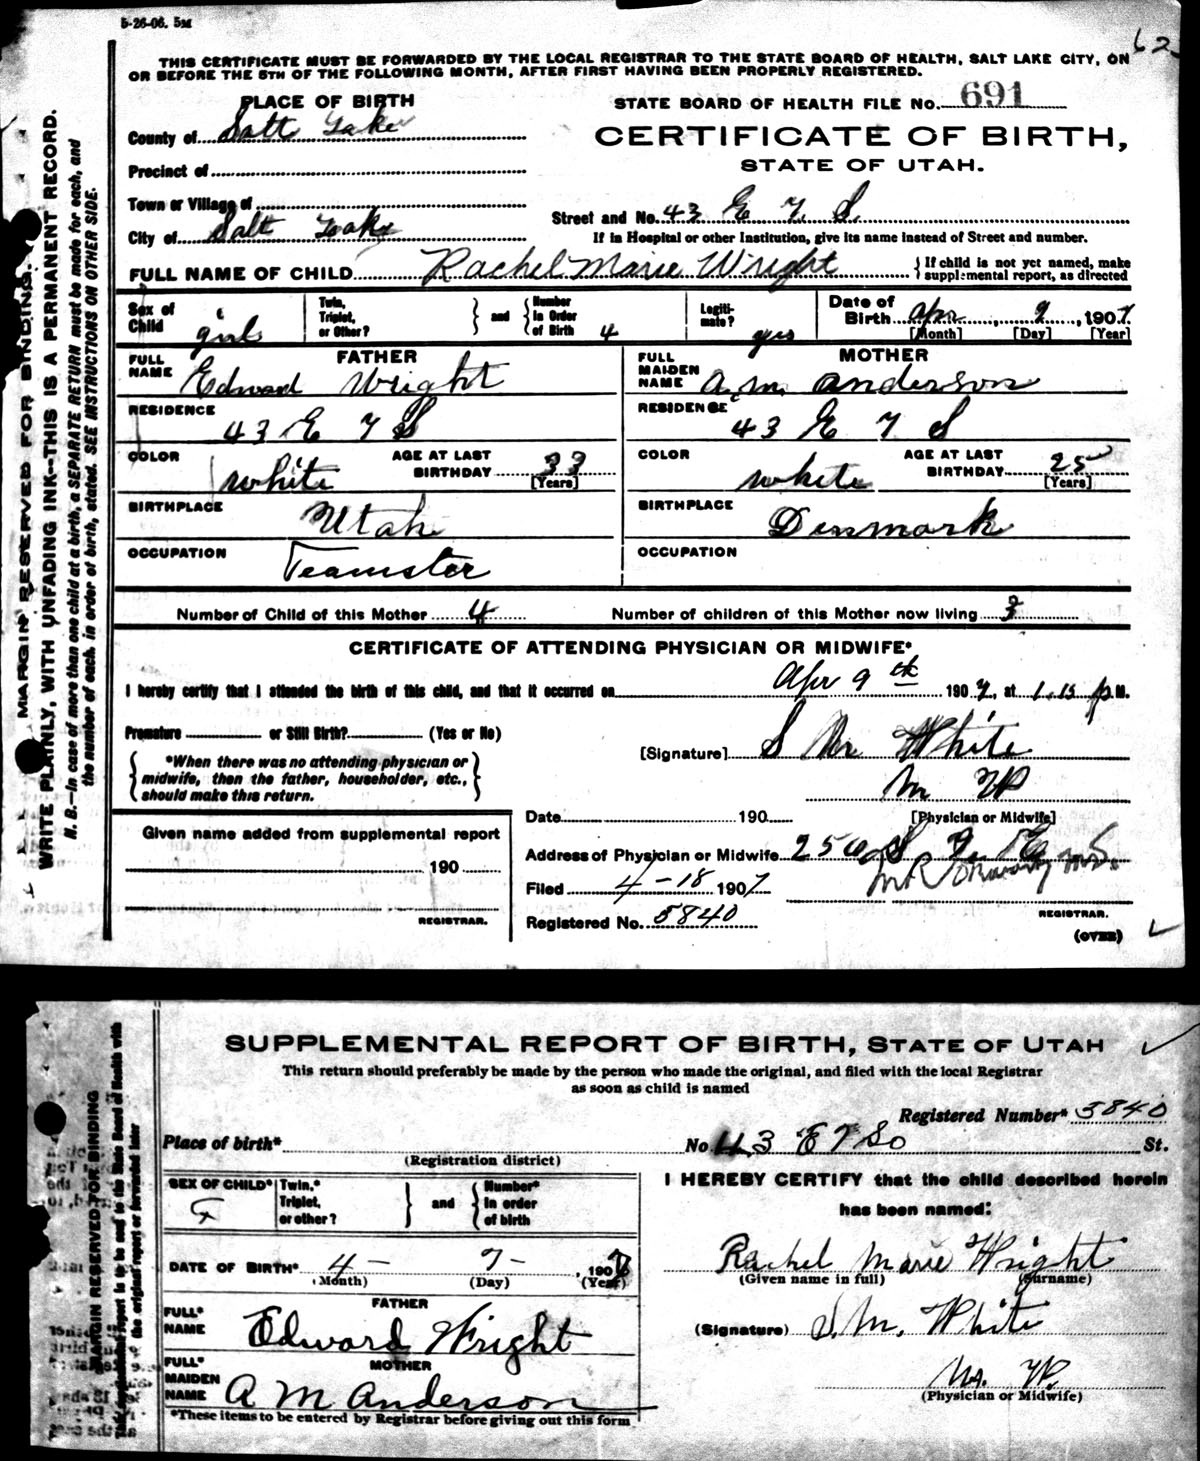 5-26-06. 5M
62
THIS CERTIFICATE MUST BE FORWARDED BY THE LOCAL REGISTRAR TO THE STATE BOARD OF HEALTH, SALT LAKE CITY, ON
OR BEFORE THE 5TH OF THE FOLLOWING MONTH, AFTER FIRST HAVING BEEN PROPERLY REGISTERED.
PLACE OF BIRTH
County of Salt Lake
Precinct of
Town or Village of
City of Salt Lake
STATE BOARD OF HEALTH FILE No. 691
CERTIFICATE OF BIRTH,
STATE OF UTAH.
Street and No. 43 E 7 S.
If in Hospital or other Institution, give its name instead of Street and number.
FULL NAME OF CHILD Rachel Marie Wright { If child is not yet named, make
supplemental report, as directed
Sex of Child girl
Twin, Triplet, or Other? } and { Number in Order of Birth 4
Legiti-mate? yes
Date of Birth Apr 9, 1907
[Month] [Day] [Year]
FATHER
FULL NAME Edward Wright
RESIDENCE 43 E 7 S
COLOR white AGE AT LAST BIRTHDAY 33
[Years]
BIRTHPLACE Utah
OCCUPATION Teamster
MOTHER
FULL MAIDEN NAME A. M. Anderson
RESIDENCE 43 E 7 S
COLOR white AGE AT LAST BIRTHDAY 25
[Years]
BIRTHPLACE Denmark
OCCUPATION
Number of Child of this Mother 4 Number of children of this Mother now living 3
CERTIFICATE OF ATTENDING PHYSICIAN OR MIDWIFE*
I hereby certify that I attended the birth of this child, and that it occurred on Apr 9th 1907, at 1.15 P.M.
Premature or Still Birth? (Yes or No)
{ *When there was no attending physician or
midwife, then the father, householder, etc.,
should make this return. }
[Signature] S M White
[Physician or Midwife]
Given name added from supplemental report
190
REGISTRAR.
Date 190
Address of Physician or Midwife
Filed 4-18 1907
Registered No. 3840
REGISTRAR.
(OVER)
MARGIN RESERVED FOR BINDING.
WRITE PLAINLY, WITH UNFADING INK--THIS IS A PERMANENT RECORD.
N. B.—In case of more than one child at a birth, a SEPARATE RETURN must be made for each, and
the number of each, in order of birth, stated. SEE INSTRUCTIONS ON OTHER SIDE.
SUPPLEMENTAL REPORT OF BIRTH, STATE OF UTAH
This return should preferably be made by the person who made the original, and filed with the local Registrar
as soon as child is named
Registered Number* 3840
Place of birth* No 43 E 7 So St.
(Registration district)
SEX OF CHILD* G
Twin,* Triplet, or other? } and { Number* in order of birth
DATE OF BIRTH* 4 - 9 - , 1907
(Month) (Day) (Year)
FATHER
FULL* NAME Edward Wright
MOTHER
FULL* MAIDEN NAME A M Anderson
*These items to be entered by Registrar before giving out this form
I HEREBY CERTIFY that the child described herein
has been named:
Rachel Marie Wright
(Given name in full) (Surname)
(Signature) S. M. White
(Physician or Midwife)
MARGIN RESERVED FOR BINDING